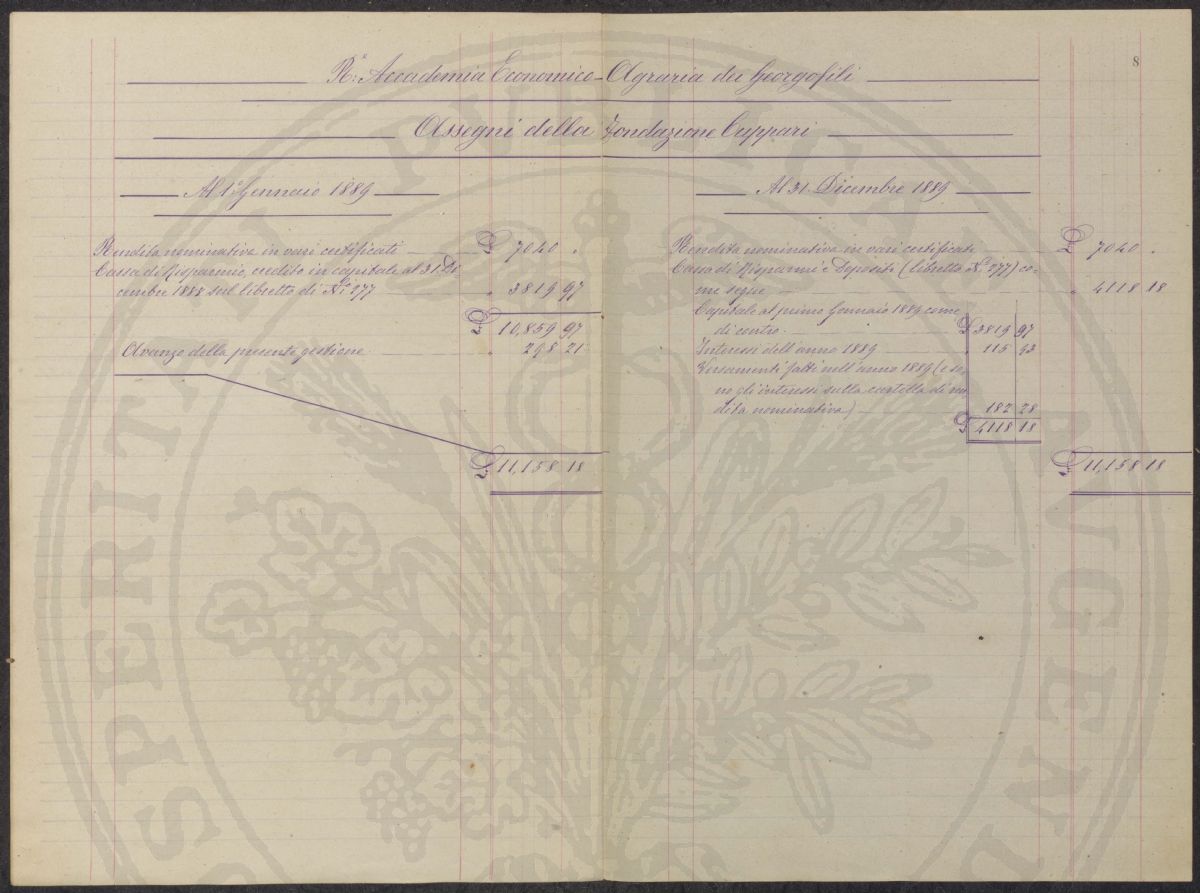 8
R.ª Accademia Economico-Agraria dei Georgofili
Assegni della Fondazione Cuppari
Al 1º Gennaio 1889
Rendita nominativa in vari certificati £ 7040 "
Cassa di Risparmio, credito in capitale al 31. Di
cembre 1888 sul libretto di Nº 277 " 3819 97
£ 10,859 97
Avanzo della presente gestione " 298 21
£ 11,158 18
Al 31. Dicembre 1889
Rendita nominativa in vari certificati £ 7040 "
Cassa di Risparmi e Depositi (libretto Nº 277) co-
me segue " 4118 18
Capitale al primo Gennaio 1889 come
di contro £ 3819 97
Interessi dell'anno 1889 " 115 93
Versamenti fatti nell'anno 1889 (e so-
no gli interessi sulla cartella di ren
dita nominativa) 182 28
£ 4118 18
£ 11,158 18
PROSPERITATI PVBLICAE AVGENDAE